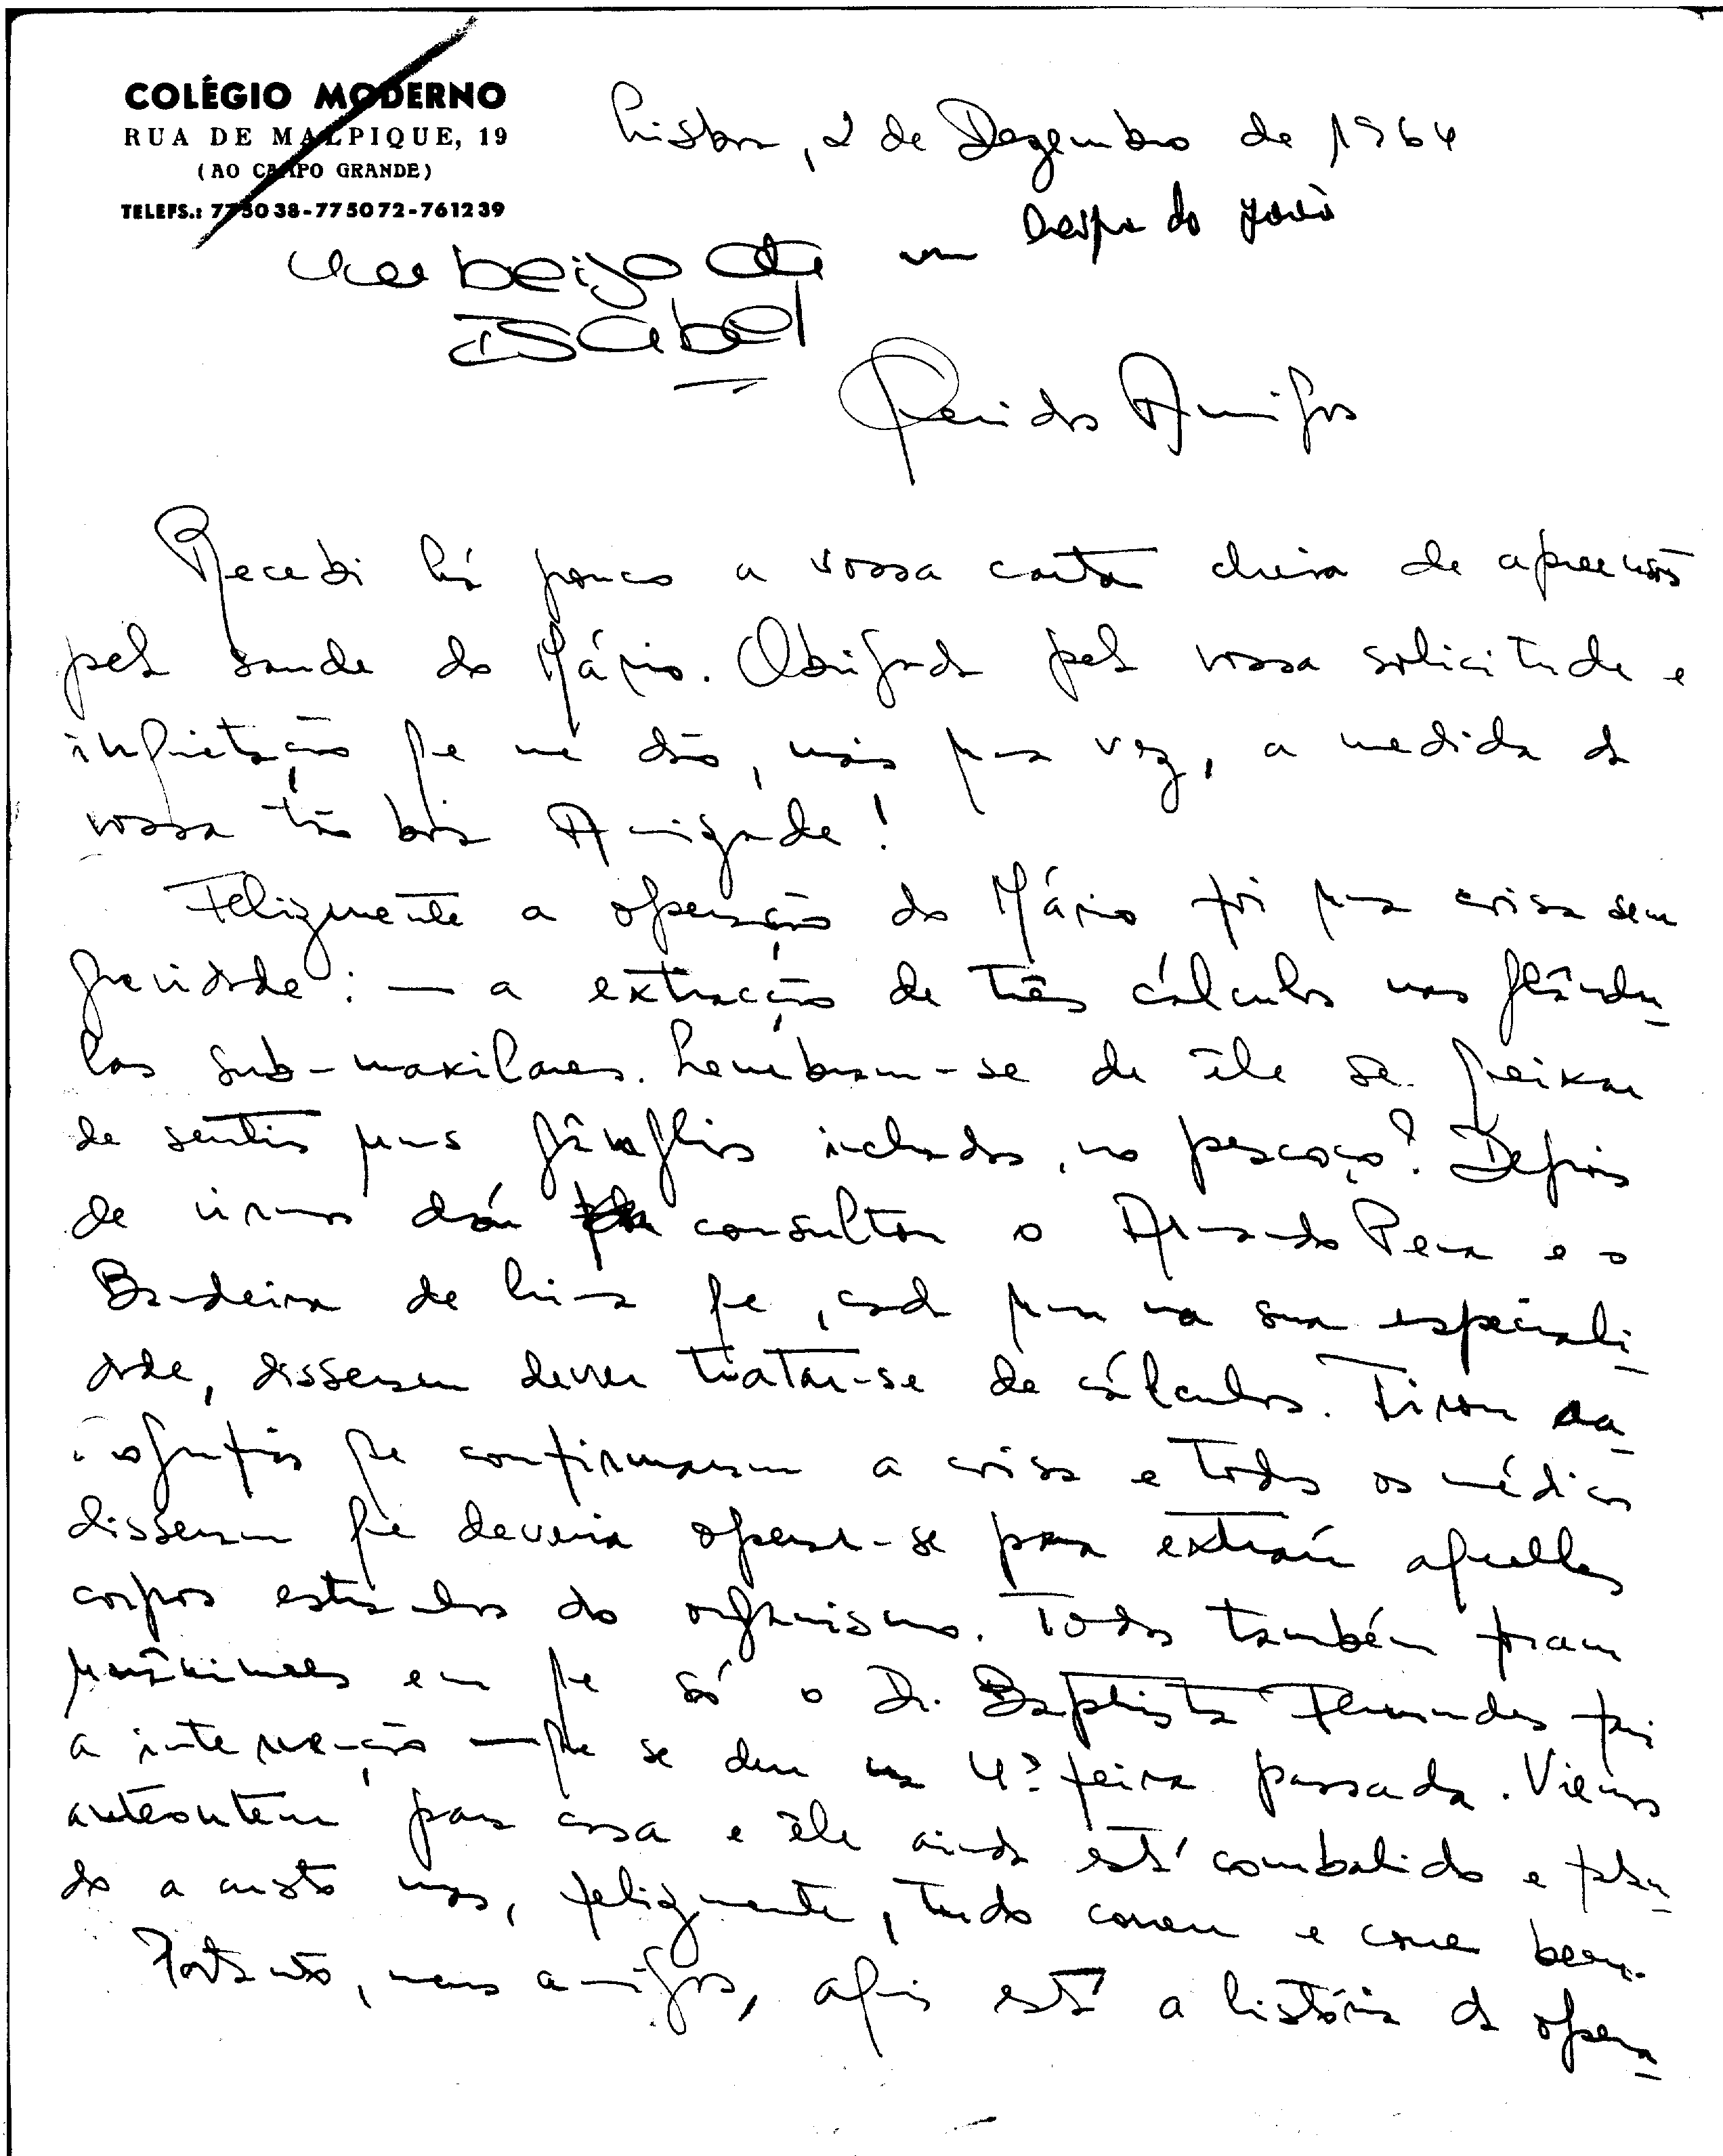 COLÉGIO MODERNO
RUA DE MALPIQUE, 19
(AO CAMPO GRANDE)
TELEFS.: 775038-775072-761239
Lisboa, 2 de Dezembro de 1964
um do João
um beijo da
Isabel
Queridos Amigos
Recebi há pouco a vossa carta cheia de apreensões
pela saude do Mário. Obrigada pela vossa solicitude e
inquietação que me dão, mais uma vez, a medida da
vossa tão boa Amizade!
Felizmente a operação do Mário foi uma coisa sem
gravidade: — a extracção de três cálculos nas glându-
las sub-maxilares. Lembram-se de êle se queixar
de sentir uns gânglios inchados, no pescoço? Depois
de virmos daí consultou o Armando Pena e o
Bandeira de Lima que, cada um na sua especiali-
dade, disseram dever tratar-se de cálculos. Tirou ra-
diografias que confirmaram a coisa e todos os médicos
disseram que deveria operar-se para extraír aquelles
corpos estranhos do organismo. Todos também foram
unânimes em que só o Dr. Baptista Fernandes
a intervenção — que se deu na 4ª feira passada. Viemos
anteontem para casa e êle ainda está combalido e falan-
do a custo mas, felizmente, tudo correu e corre bem.
Portanto, meus amigos, aqui está a história da opera-